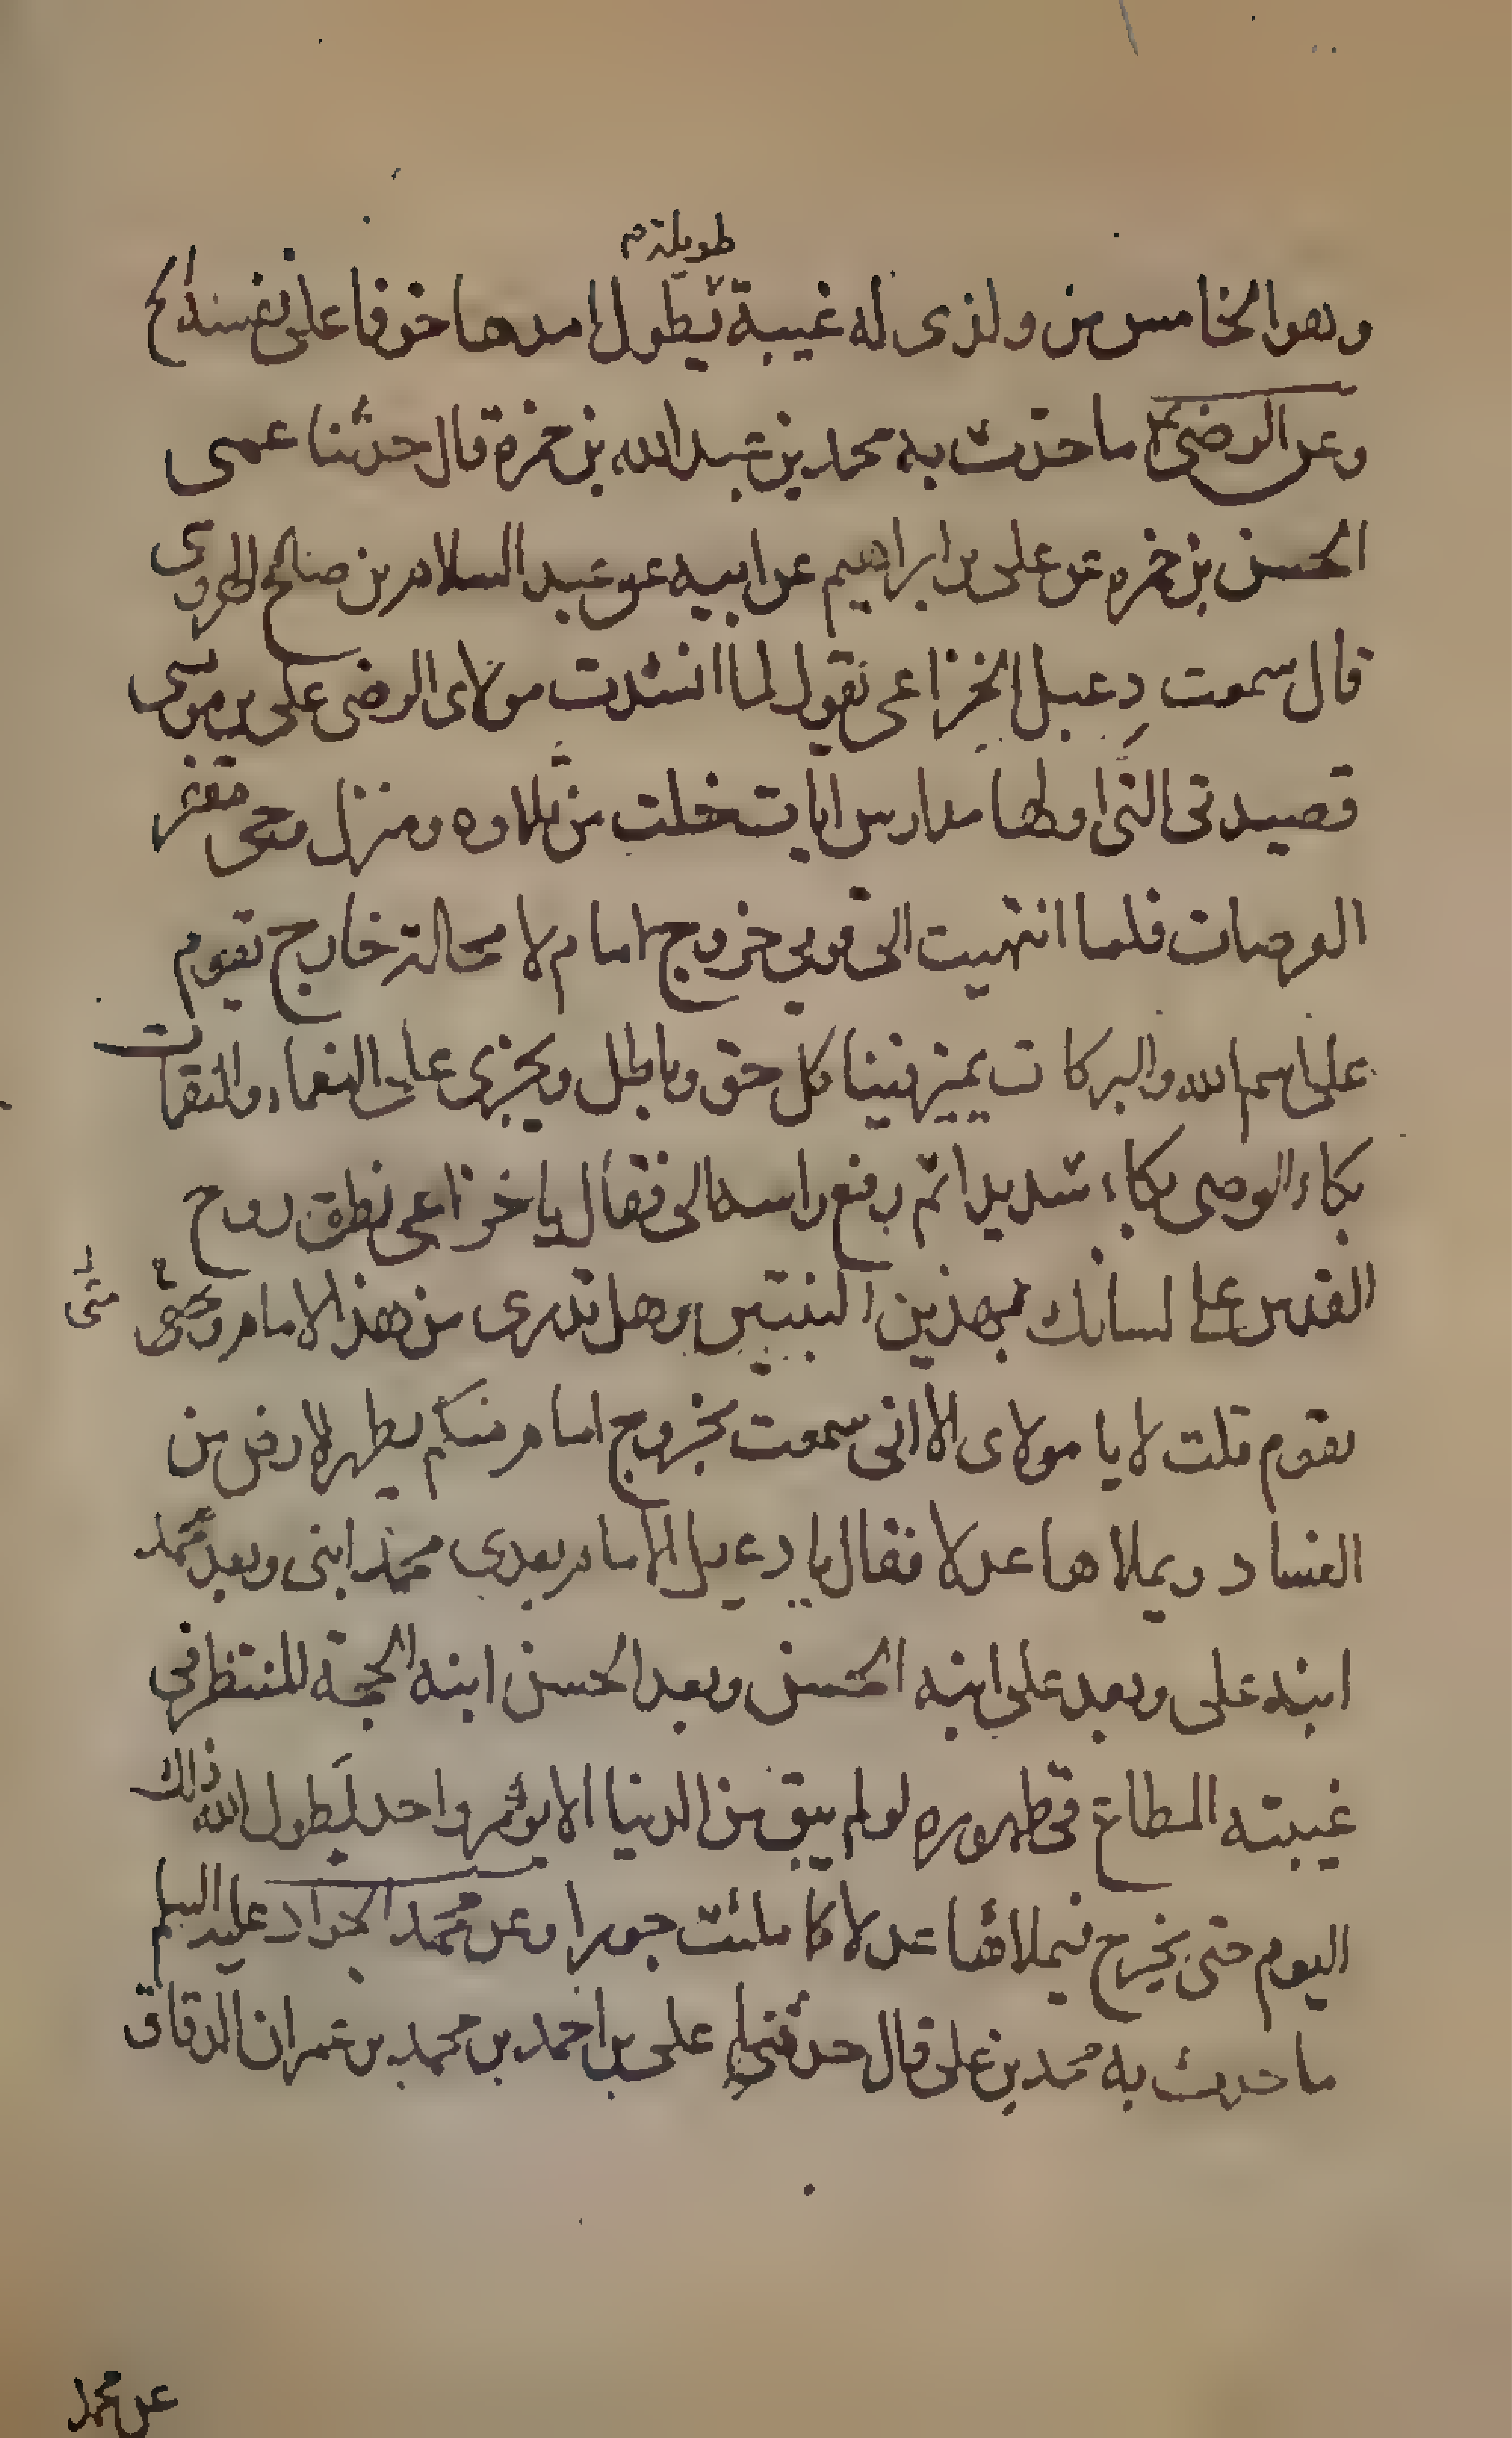 طويلة م
وهو الخامس من ولدى له غيبة يطول امدها خوفا على نفسه الخ
وعن الرضى ع ما حدث به محمد بن عبد الله بن حمزة قال حدثنا عمى
الحسن بن حمزه عن على بن ابراهيم عن ابيه عن عبد السلام بن صالح الهروى
قال سمعت دِعبل الخزاعى يقول لما انشدت مولاى الرضى على بن موسى
قصيدتى التى اولها مدارس ايات خلت من تلاوه ومنزل وحى مقفر
العرصات فلما انتهيت الى قولى خروج امام لا محالة خارج يقوم
على اسم الله والبركات يميز فينا كل حق وباطل ويجزى على النعماء والنقمات
بكاء الرضى بكاء شديدا ثم رفع راسه الى فقال يا خزاعى نطق روح
القدس على لسانك بهذين البيتين وهل تدرى من هذا الامام ومتى
متى
يقوم قلت لا يا مولاى الا انى سمعت بخروج امام منكم يطهر الارض من
الفساد ويملاها عدلا فقال يا دعبل الامام بعدى محمد ابنى وبعد محمد
ابنه على وبعد على ابنه الحسن وبعد الحسن ابنه الحجة المنتظر فى
غيبته المطاع فى ظهوره لو لم يبق من الدنيا الا يوم واحد لَطول الله ذلك
اليوم حتى يخرج فيملاها عدلا كما ملئت جورا وعن محمد الجواد عليه السلم
ما حدث به محمد بن على قال حدثنى على بن احمد بن محمد بن عمران الدقاق
عن محمد